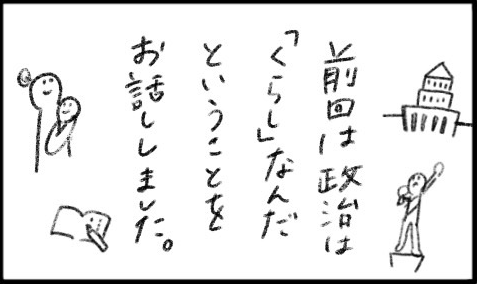 前回は政治は
「くらし」なんだ
ということを
お話ししました。